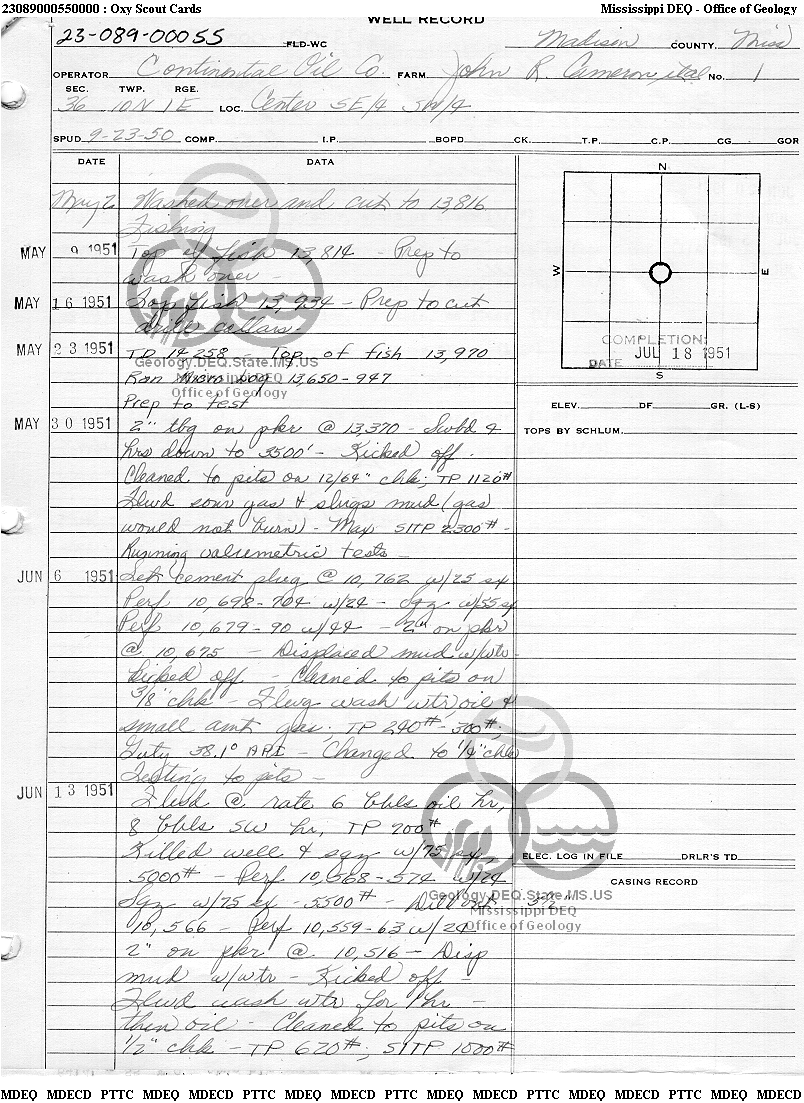 23089000550000 : Oxy Scout Cards
Mississippi DEQ - Office of Geology
WELL RECORD
23-089-00055 FLD-WC Madison COUNTY, Miss
OPERATOR Continental Oil Co. FARM John R. Cameron etal No. 1
SEC. TWP. RGE.
36 10N 1E LOC. Center SE/4 SW/4
SPUD 9-23-50 COMP. I.P. BOPD CK. T.P. C.P. CG GOR
DATE DATA
May 2 Washed over and cut to 13,816
Fishing
MAY 9 1951 Top of fish 13,814 - Prep to
wash over -
MAY 16 1951 Top fish 13,934 - Prep to cut
drill collars.
MAY 23 1951 TD 14258 - Top of fish 13,970
Ran Micro Log 13,650-947
Prep to test
MAY 30 1951 2" tbg on pkr @ 13,370 - Swbd 4
hrs down to 3500' - Kicked off.
Cleaned to pits on 12/64" chk; TP 1120#
Flwd sour gas & slugs mud (gas
would not burn) - Max SITP 2300# -
Running volumetric tests -
JUN 6 1951 Set cement plug @ 10,762 w/75 sx
Perf 10,698-704 w/24 - Sqz w/55 sx
Perf 10,679-90 w/44 - 2" on pkr
@ 10,675 - Displaced mud w/wtr -
Kicked off - Cleaned to pits on
3/8" chk - Flwg wash wtr, oil &
small amt gas; TP 240#-300#;
Gvty 38.1° API - Changed to 1/4" chk
Testing to pits -
JUN 13 1951 Flwd @ rate 6 bbls oil hr,
8 bbls SW hr, TP 700#
Killed well & sqz w/75 sx
5000# - Perf 10,568-574 w/24
Sqz w/75 sx - 5500# - Drld out
10,566 - Perf 10,559-63 w/24
2" on pkr @ 10,516 - Disp
mud w/wtr - Kicked off -
Flwd wash wtr for 1 hr -
then oil - Cleaned to pits on
1/2" chk - TP 620#; SITP 1000#
N
W
E
S
COMPLETION:
DATE JUL 18 1951
ELEV. DF GR. (L-S)
TOPS BY SCHLUM.
ELEC. LOG IN FILE DRLR'S TD
CASING RECORD
5 1/2"
Geology.DEQ.State.MS.US
Mississippi DEQ
Office of Geology
Geology.DEQ.State.MS.US
Mississippi DEQ
Office of Geology
MDEQ MDECD PTTC MDEQ MDECD PTTC MDEQ MDECD PTTC MDEQ MDECD PTTC MDEQ MDECD PTTC MDEQ MDECD